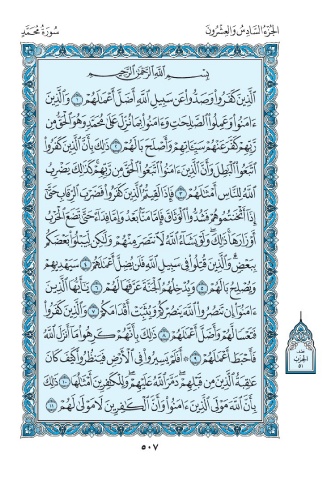 الجزء السادس والعشرون
سورة محمد
بِسْمِ ٱللَّهِ ٱلرَّحْمَٰنِ ٱلرَّحِيمِ
ٱلَّذِينَ كَفَرُوا۟ وَصَدُّوا۟ عَن سَبِيلِ ٱللَّهِ أَضَلَّ أَعْمَٰلَهُمْ ١ وَٱلَّذِينَ
ءَامَنُوا۟ وَعَمِلُوا۟ ٱلصَّٰلِحَٰتِ وَءَامَنُوا۟ بِمَا نُزِّلَ عَلَىٰ مُحَمَّدٍ وَهُوَ ٱلْحَقُّ مِن
رَّبِّهِمْ كَفَّرَ عَنْهُمْ سَيِّـَٔاتِهِمْ وَأَصْلَحَ بَالَهُمْ ٢ ذَٰلِكَ بِأَنَّ ٱلَّذِينَ كَفَرُوا۟
ٱتَّبَعُوا۟ ٱلْبَٰطِلَ وَأَنَّ ٱلَّذِينَ ءَامَنُوا۟ ٱتَّبَعُوا۟ ٱلْحَقَّ مِن رَّبِّهِمْ كَذَٰلِكَ يَضْرِبُ
ٱللَّهُ لِلنَّاسِ أَمْثَٰلَهُمْ ٣ فَإِذَا لَقِيتُمُ ٱلَّذِينَ كَفَرُوا۟ فَضَرْبَ ٱلرِّقَابِ حَتَّىٰٓ
إِذَآ أَثْخَنتُمُوهُمْ فَشُدُّوا۟ ٱلْوَثَاقَ فَإِمَّا مَنًّۢا بَعْدُ وَإِمَّا فِدَآءً حَتَّىٰ تَضَعَ ٱلْحَرْبُ
أَوْزَارَهَا ذَٰلِكَ وَلَوْ يَشَآءُ ٱللَّهُ لَٱنتَصَرَ مِنْهُمْ وَلَٰكِن لِّيَبْلُوَا۟ بَعْضَكُم
بِبَعْضٍ وَٱلَّذِينَ قُتِلُوا۟ فِى سَبِيلِ ٱللَّهِ فَلَن يُضِلَّ أَعْمَٰلَهُمْ ٤ سَيَهْدِيهِمْ
وَيُصْلِحُ بَالَهُمْ ٥ وَيُدْخِلُهُمُ ٱلْجَنَّةَ عَرَّفَهَا لَهُمْ ٦ يَٰٓأَيُّهَا ٱلَّذِينَ
ءَامَنُوٓا۟ إِن تَنصُرُوا۟ ٱللَّهَ يَنصُرْكُمْ وَيُثَبِّتْ أَقْدَامَكُمْ ٧ وَٱلَّذِينَ كَفَرُوا۟
فَتَعْسًا لَّهُمْ وَأَضَلَّ أَعْمَٰلَهُمْ ٨ ذَٰلِكَ بِأَنَّهُمْ كَرِهُوا۟ مَآ أَنزَلَ ٱللَّهُ
فَأَحْبَطَ أَعْمَٰلَهُمْ ٩ أَفَلَمْ يَسِيرُوا۟ فِى ٱلْأَرْضِ فَيَنظُرُوا۟ كَيْفَ كَانَ
عَٰقِبَةُ ٱلَّذِينَ مِن قَبْلِهِمْ دَمَّرَ ٱللَّهُ عَلَيْهِمْ وَلِلْكَٰفِرِينَ أَمْثَٰلُهَا ١٠ ذَٰلِكَ
بِأَنَّ ٱللَّهَ مَوْلَى ٱلَّذِينَ ءَامَنُوا۟ وَأَنَّ ٱلْكَٰفِرِينَ لَا مَوْلَىٰ لَهُمْ ١١
الحزب
٥١
٥٠٧